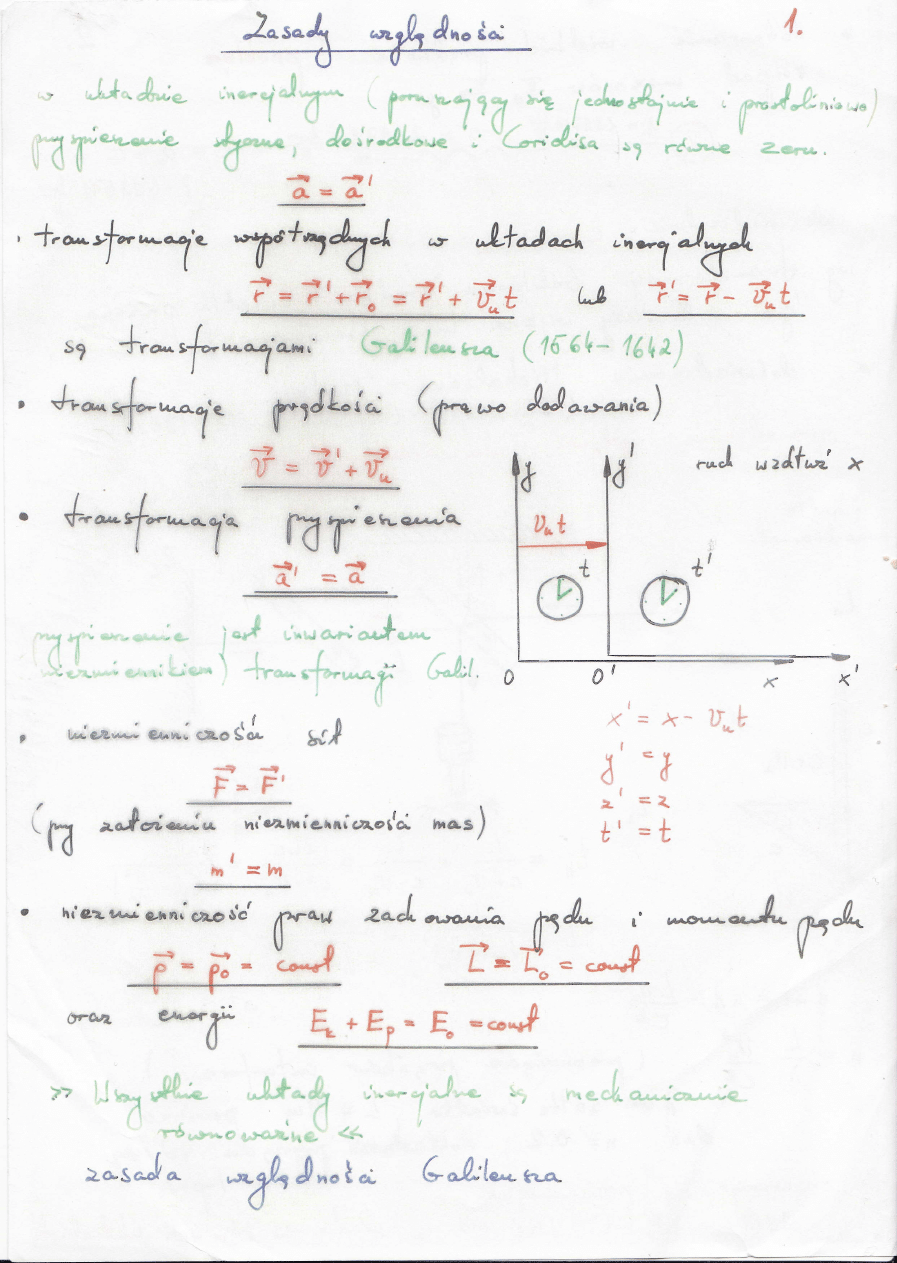 Zasady względności
1.
w układzie inercjalnym (poruszający się jednostajnie i prostoliniowo)
przyspieszenie styczne, dośrodkowe i Coriolisa są równe zeru.
a⃗ = a⃗'
• transformacje współrzędnych w układach inercjalnych
r⃗ = r⃗' + r⃗₀ = r⃗' + v⃗ᵤt lub r⃗' = r⃗ - v⃗ᵤt
są transformacjami Galileusza (1564-1642)
• transformacje prędkości (prawo dodawania)
v⃗ = v⃗' + v⃗ᵤ
• transformacja przyspieszenia
a⃗' = a⃗
przyspieszenie jest inwariantem
niezmiennikiem) transformacji Galil.
ruch wzdłuż x
y y'
vᵤt
t t'
0 0' x x'
x' = x - vᵤt
y' = y
z' = z
t' = t
• niezmienniczość sił
F⃗ = F⃗'
(przy założeniu niezmienniczości mas)
m' = m
• niezmienniczość praw zachowania pędu i momentu pędu
p⃗ = p⃗₀ = const L⃗ = L⃗₀ = const
oraz energii Eₖ + Eₚ = E₀ = const
>> Wszystkie układy inercjalne są mechanicznie
równoważne <<
zasada względności Galileusza